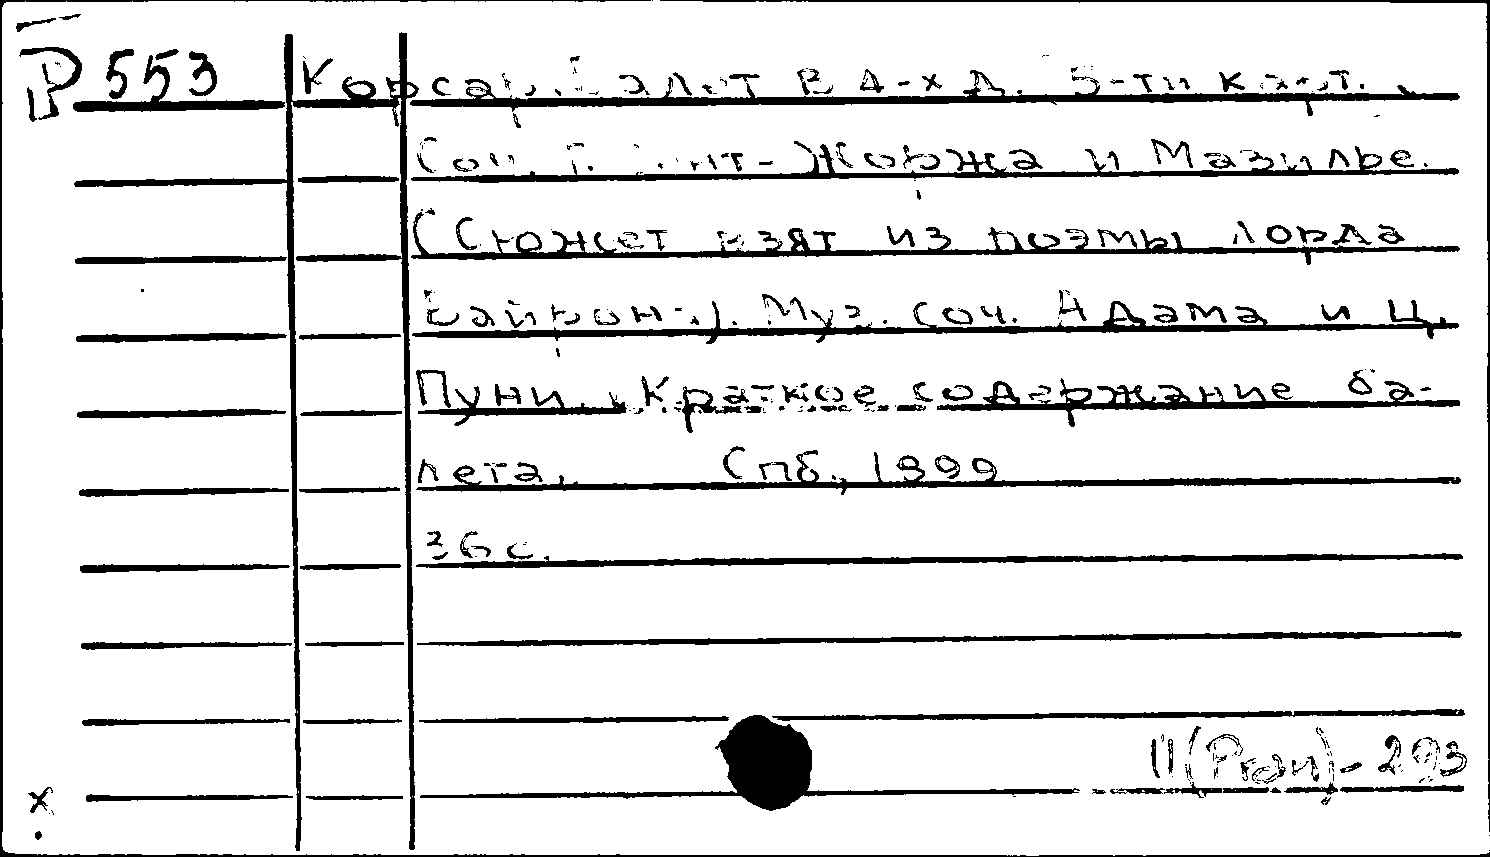 Р 553 Корсар. Балет в 4-х д. 5-ти карт.
Соч. Г. Сент-Жоржа и Мазилье.
(Сюжет взят из поэмы лорда
Байрона). Муз. соч. Адама и Ц.
Пуни. Краткое содержание ба-
лета. Спб., 1899
36 с.
293
x